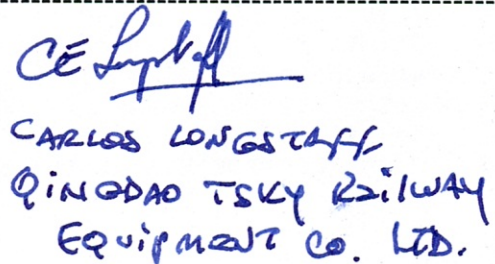 CE Longstaff
CARLOS LONGSTAFF
QINGDAO TSKY RAILWAY
EQUIPMENT CO. LTD.